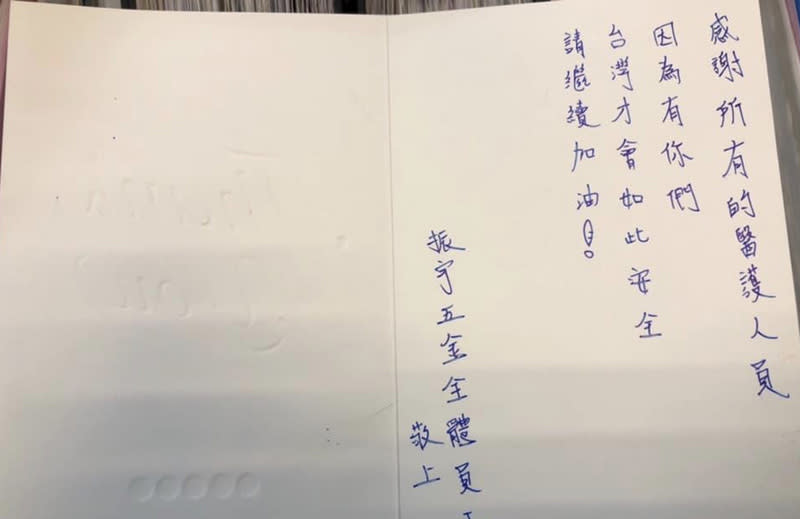 感謝所有的醫護人員
因為有你們
台灣才會如此安全
請繼續加油!
振宇五金全體員工
敬上